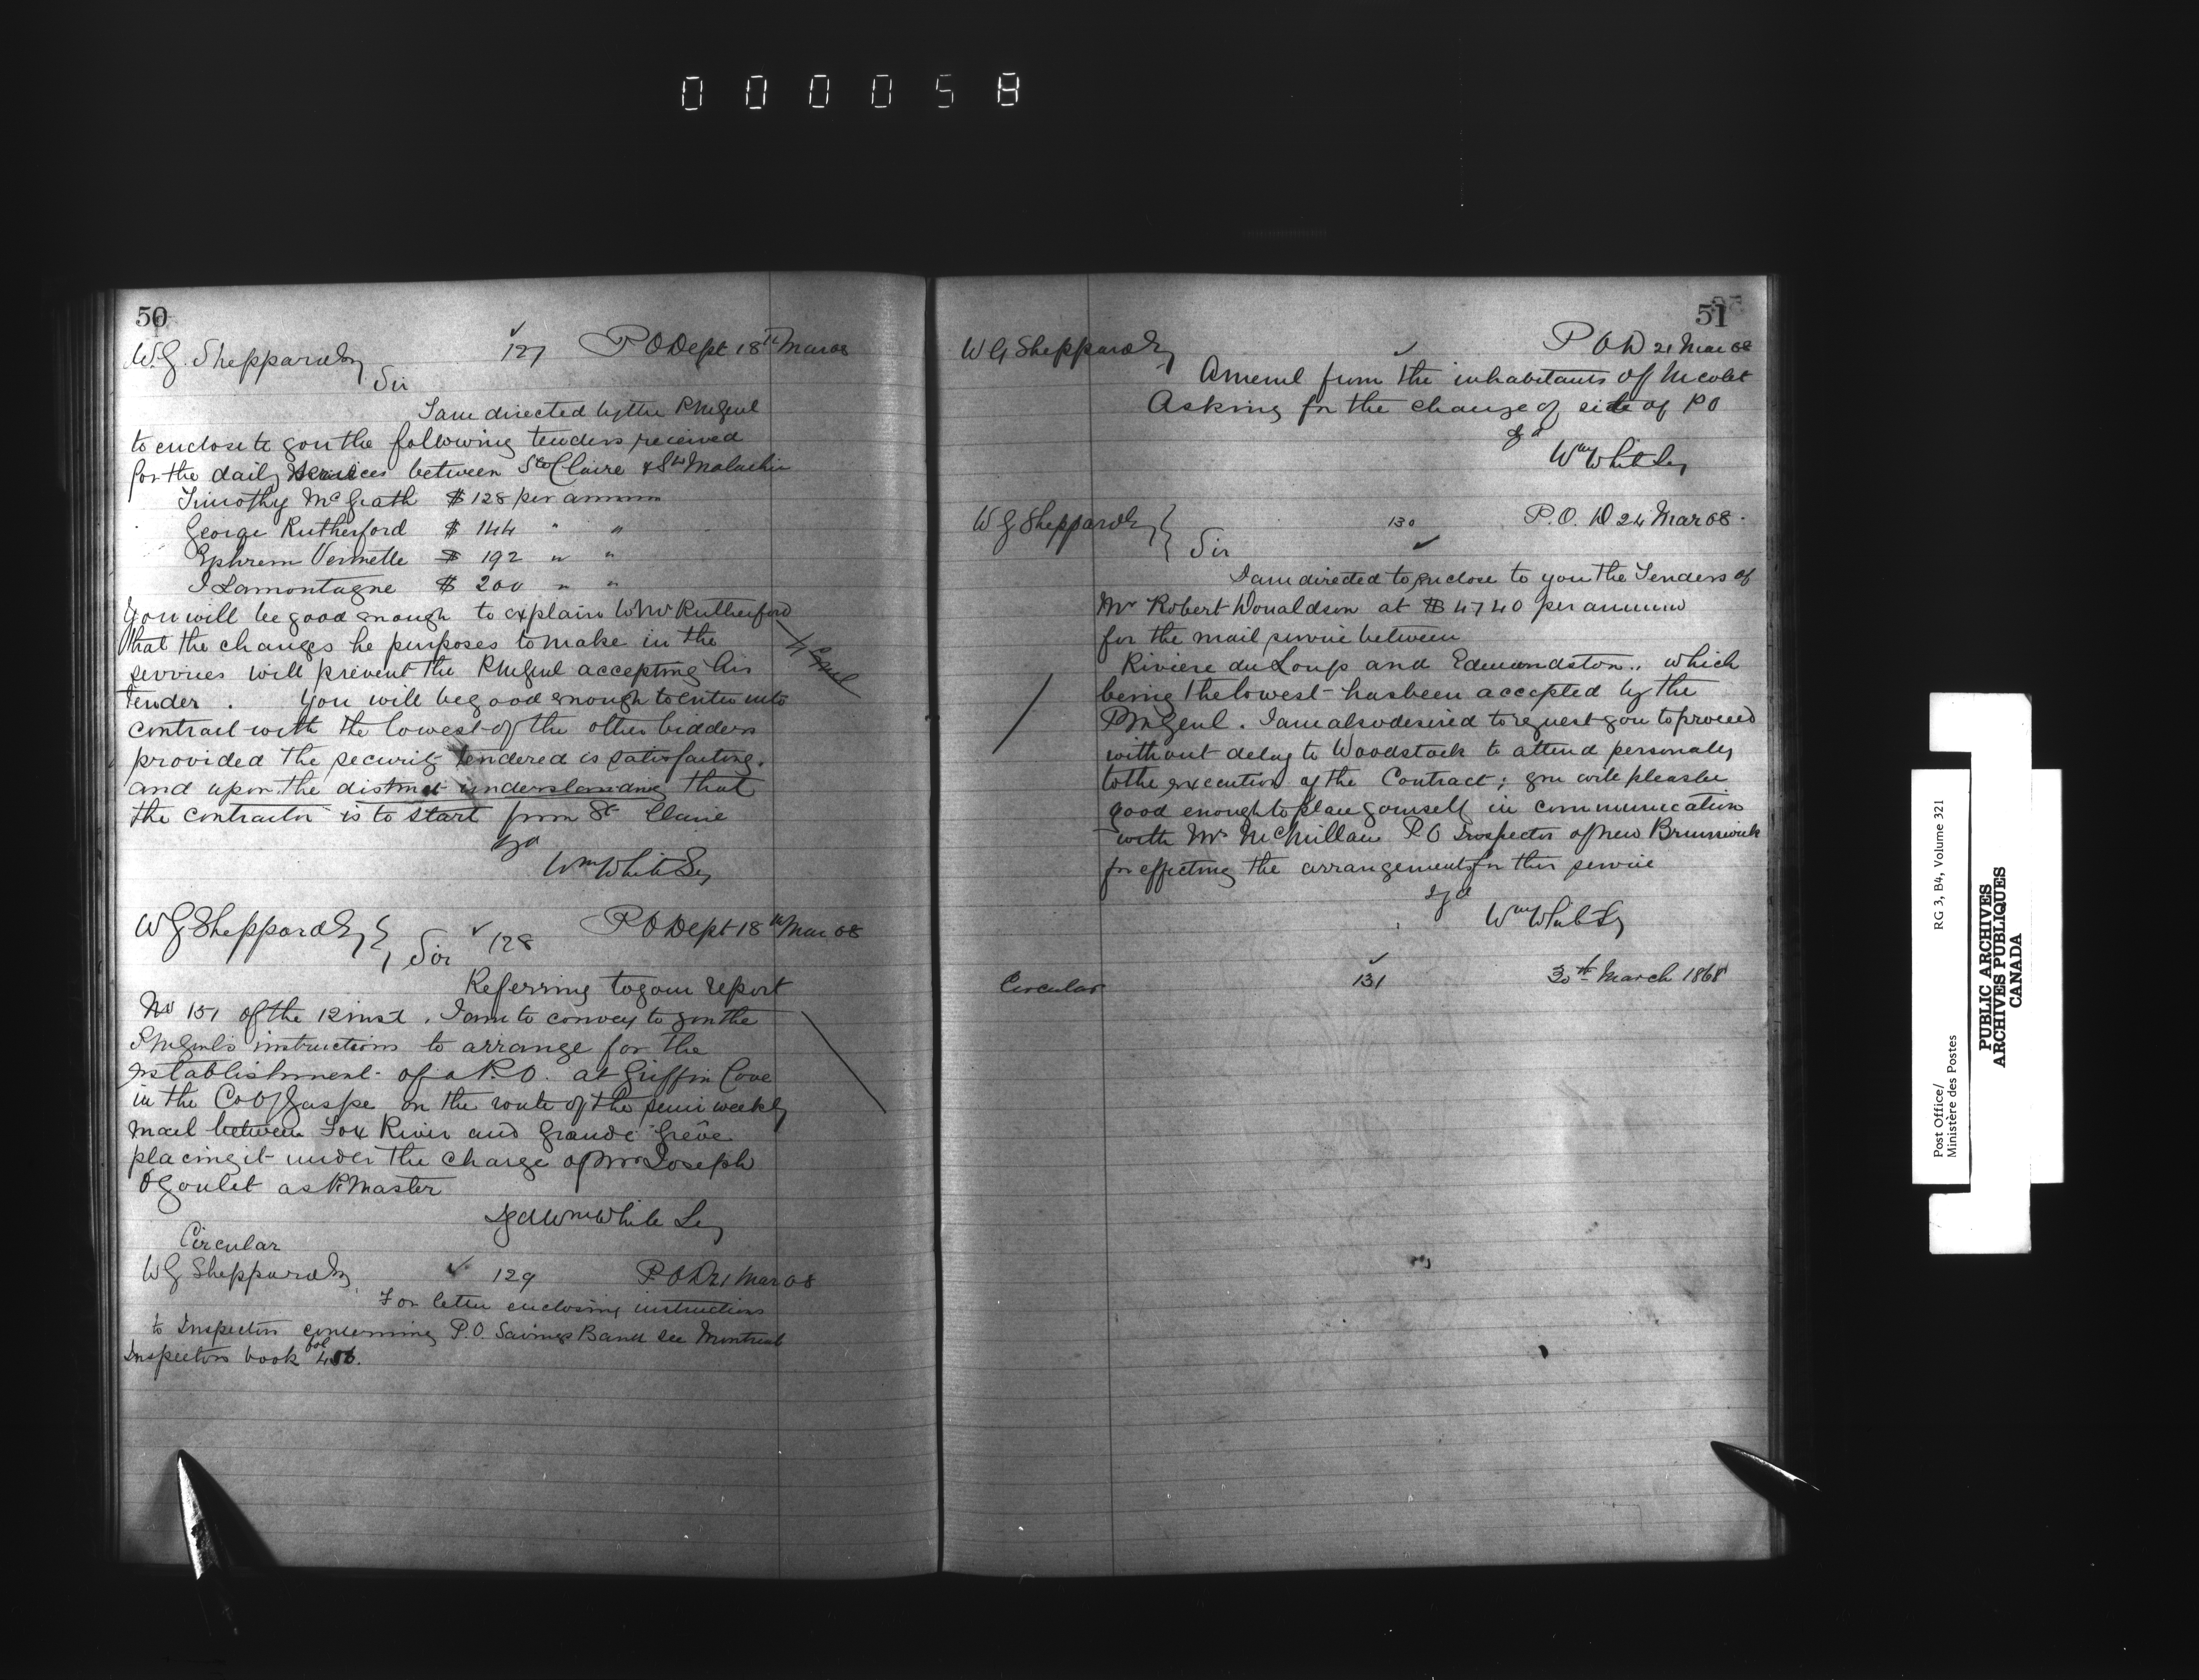 000058
50
W.G. Sheppard Esq 127 P O Dept 18th Mar 68
Sir
I am directed by the P M Genl
to enclose to you the following tenders received
for the daily services between Ste Claire & St Malachie
Timothy McGrath $ 128 per annum
George Rutherford $ 144 " "
Ephrem Vermette $ 192 " "
I Lamontagne $ 200 " "
You will be good enough to explain to Mr Rutherford
that the changes he purposes to make in the
services will prevent the P M Genl accepting his
Tender. You will be good enough to enter into
contract with the lowest of the other bidders
provided the security tendered is satisfactory.
and upon the distinct understanding that
the contractor is to start from St Claire
sgd
Wm White Sey
W G Sheppard Esq 128 P O Dept 18th Mar 68
Sir
Referring to your report
No 151 of the 12 inst. I am to convey to you the
P M Genl's instructions to arrange for the
establishment of a P.O. at Griffin Cove
in the Co of Gaspe on the route of the semi weekly
mail between Fox River and Grande Greve
placing it under the charge of Mr Joseph
O Goulet as P. Master
Sgd Wm White Sey
Circular
W G Sheppard Esq 129 P. O D 21 Mar 68
For letter enclosing instructions
to Inspectors concerning P.O. Savings Bank see Montreal
Inspectors book fol
51
W G Sheppard Esq P O D 21 Mar 68
A meml from the inhabitants of Nicolet
Asking for the change of site of P O
sgd
Wm White Sey
W G Sheppard Esq 130 P. O. D 24 Mar 68.
Sir
I am directed to enclose to you the Tenders of
Mr Robert Donaldson at $ 4740 per annum
for the mail service between
Riviere du Loup and Edmundston.. which
being the lowest has been accepted by the
P M Genl. I am also desired to request you to proceed
without delay to Woodstock to attend personally
to the execution of the Contract; you will please be
good enough to place yourself in communication
with Mr McMillan P O Inspector of New Brunswick
for effecting the arrangements for this service
sgd
Wm White Sy
Circular 131 30th March 1868
Post Office/
Ministère des Postes
RG 3, B4, Volume 321
PUBLIC ARCHIVES
ARCHIVES PUBLIQUES
CANADA